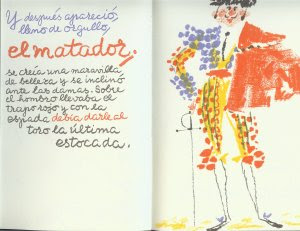 Y después apareció,
lleno de orgullo,
el matador,
se creía una maravilla
de belleza y se inclinó
ante las damas. Sobre
el hombro llevaba el
trapo rojo y con la
espada debía darle al
toro la última
estocada.